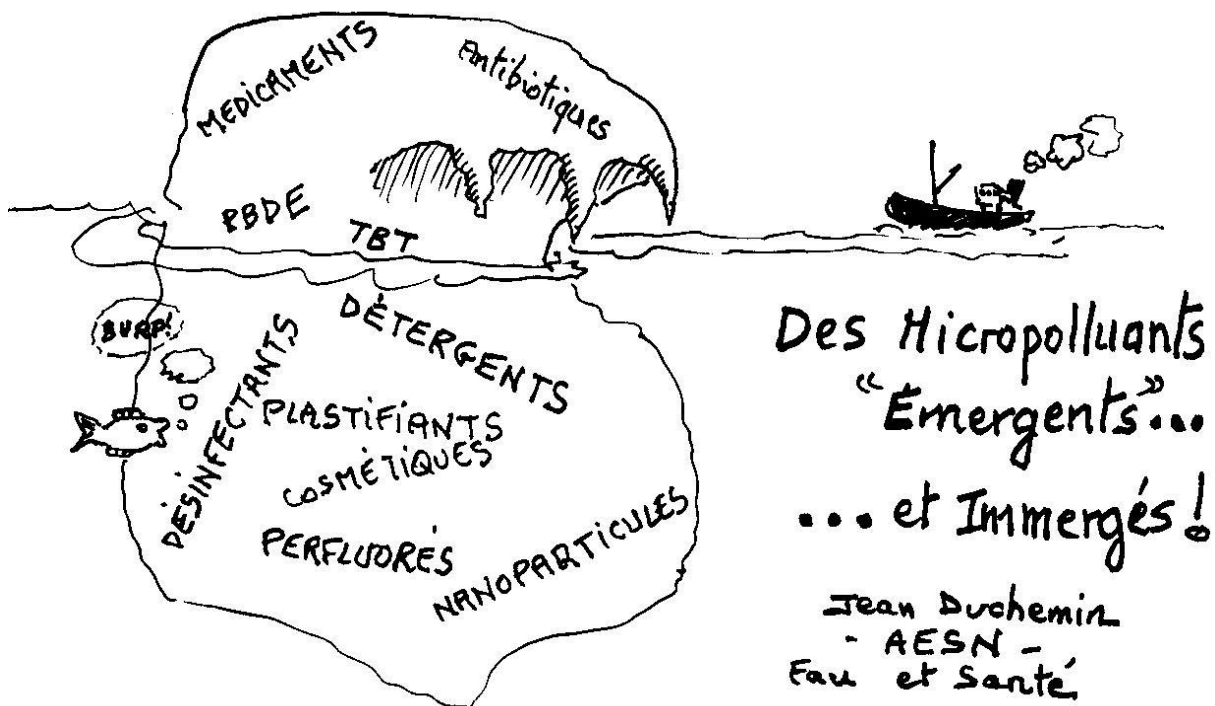 MEDICAMENTS
Antibiotiques
PBDE
TBT
BURP!
DÉTERGENTS
DÉSINFECTANTS
PLASTIFIANTS
COSMÉTIQUES
PERFLUORÉS
NANOPARTICULES
Des Micropolluants
"Émergents"...
... et Immergés !
Jean Duchemin
- AESN -
Eau et Santé